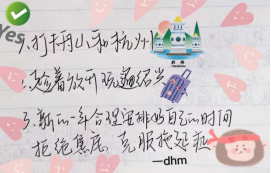 Yes
1、打卡舟山和杭州
杭州
2、趁着放开玩遍绍兴
3、新的一年合理安排好自己的时间
拒绝焦虑 克服拖延症
—dhm